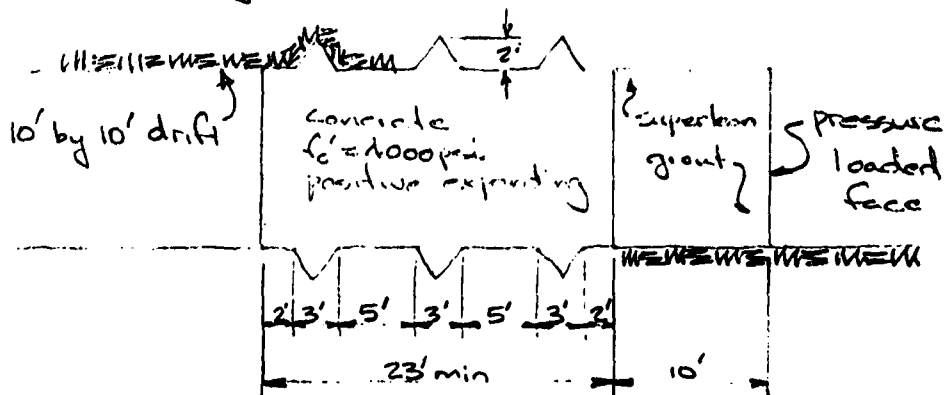 2'
10' by 10' drift
concrete
positive expanding
grout
pressure
loaded
face
2' 3' 5' 3' 5' 3' 2'
23' min
10'